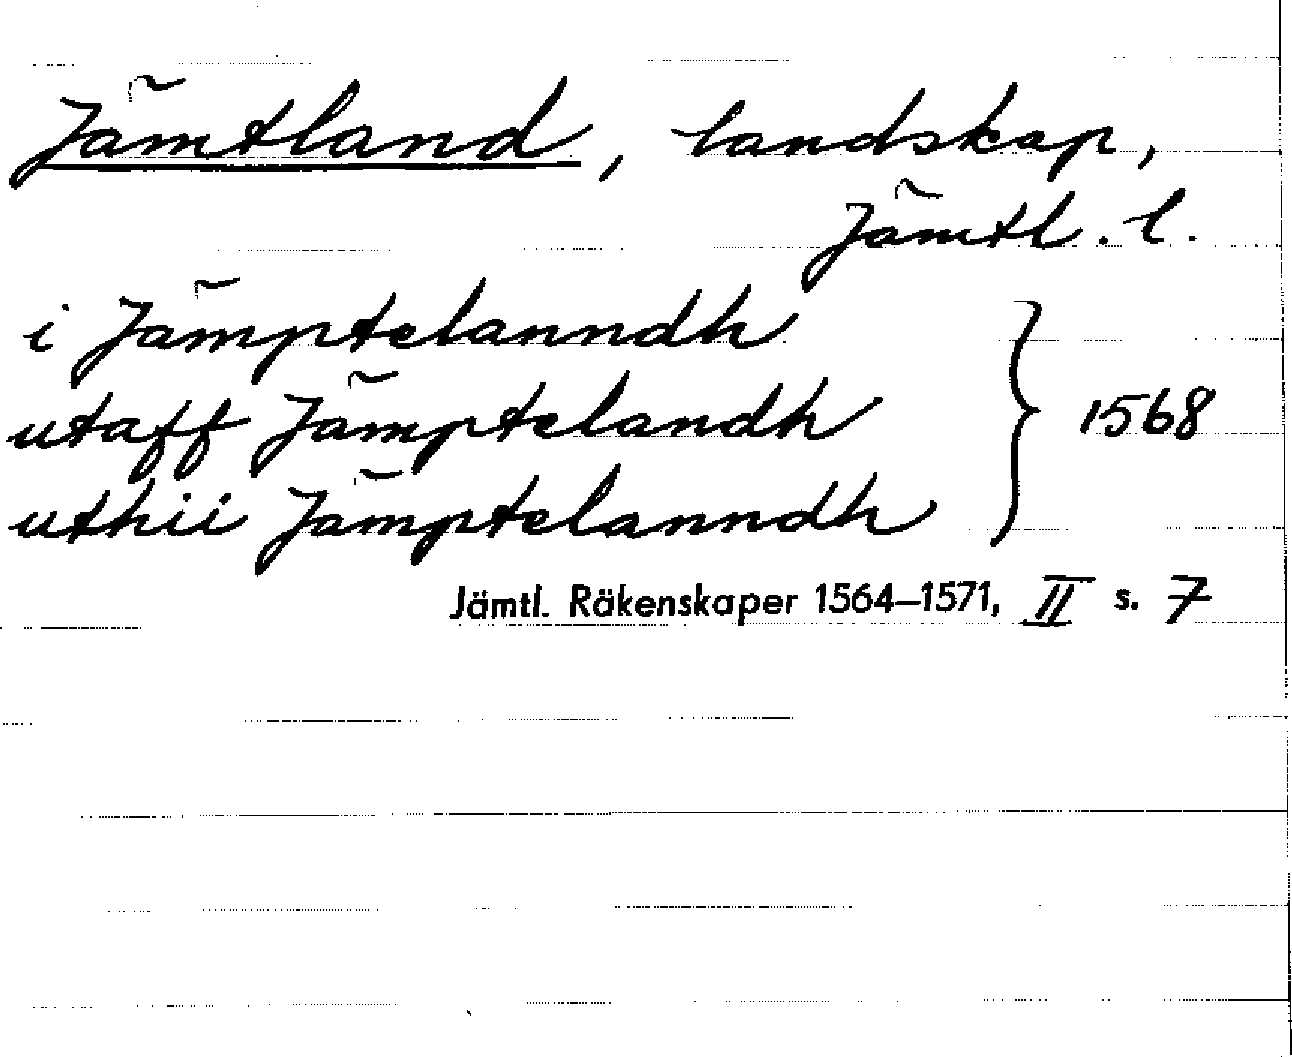 Jämtland, landskap,
Jämtl. l.
i Jämptelanndh
utaff Jämptelandh } 1568
uthii Jämptelanndh
Jämtl. Räkenskaper 1564–1571, II s. 7